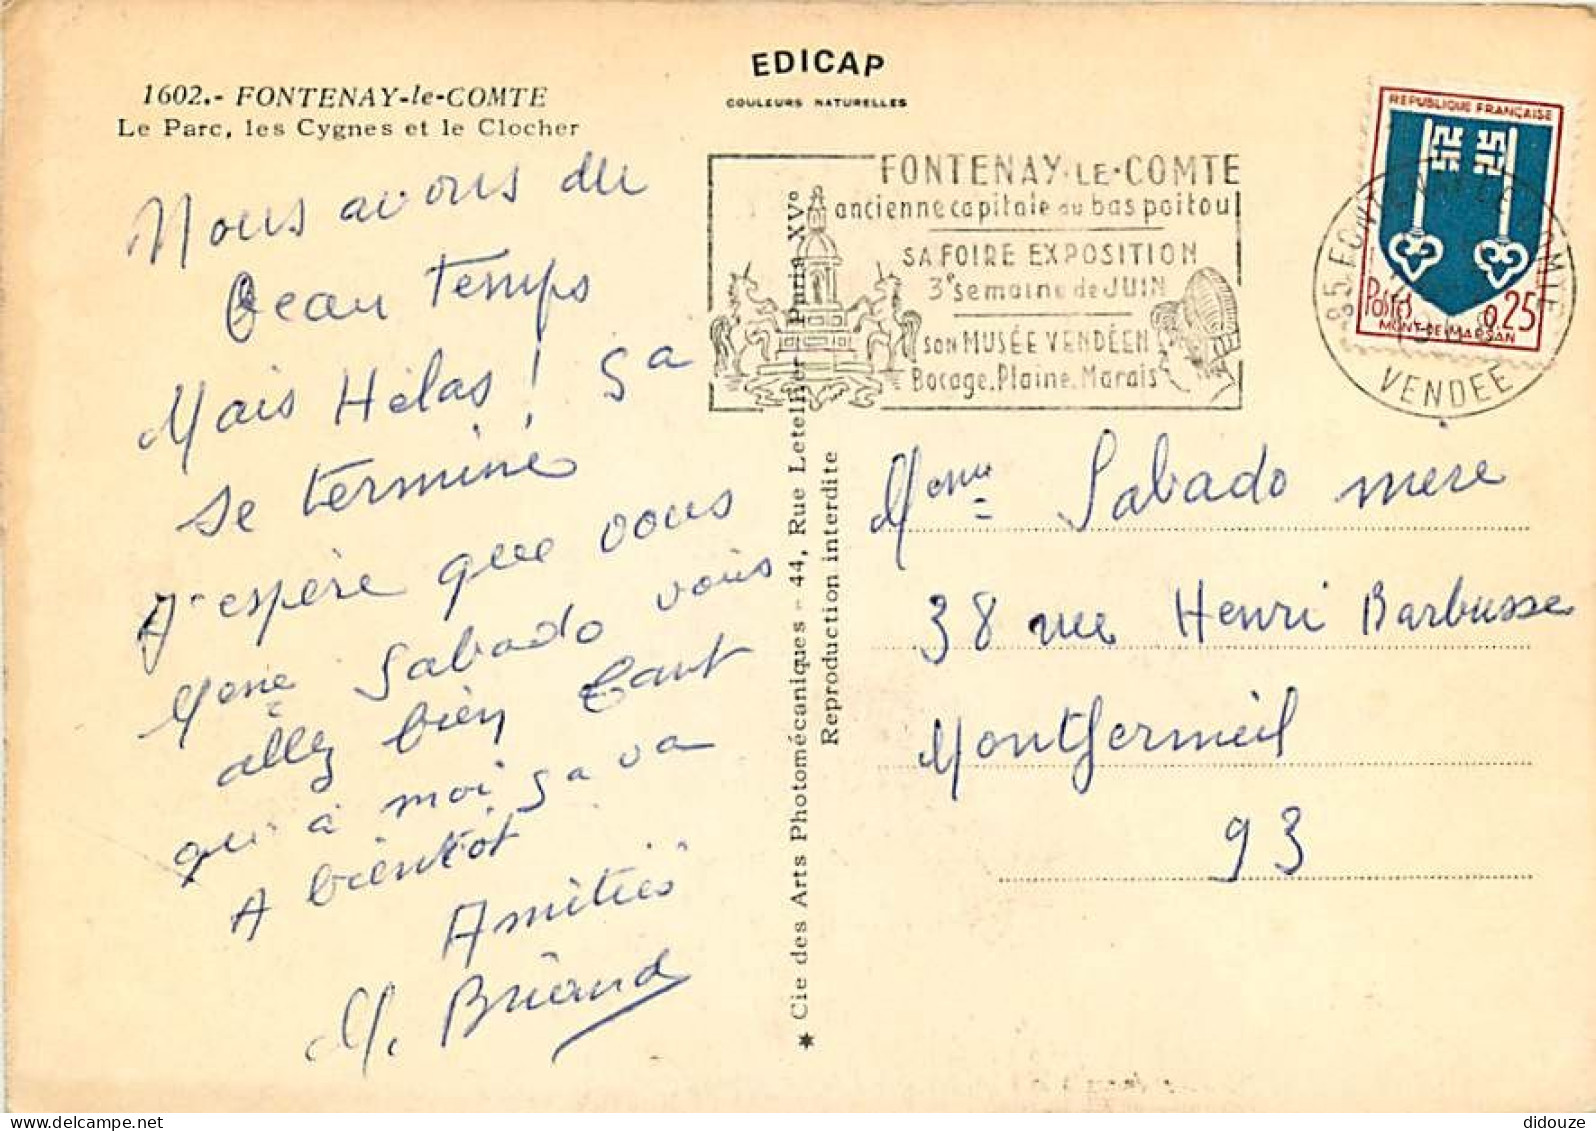 1602.- FONTENAY-le-COMTE
Le Parc, les Cygnes et le Clocher
EDICAP
COULEURS NATURELLES
Nous avons du
Beau Temps
Mais Hélas ! sa
se terminé
J'espère que vous
Mme Sabado vous
allez bien tant
qui à moi sa va
A bientôt
Amitiés
M. Briand
FONTENAY-LE-COMTE
ancienne capitale du bas poitou
SA FOIRE EXPOSITION
3e semaine de JUIN
son MUSÉE VENDÉEN
Bocage. Plaine. Marais
REPUBLIQUE FRANÇAISE
POSTES 0,25
MONT-DE-MARSAN
85 FONTENAY LE COMTE
VENDEE
Mme Sabado mere
38 rue Henri Barbusse
Montfermeil
93
* Cie des Arts Photomécaniques - 44, Rue Letellier Paris XVo
Reproduction interdite
didouze